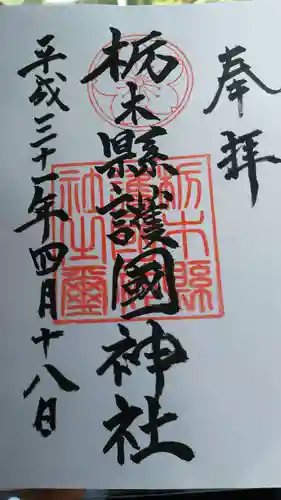 奉拝
栃木縣護國神社
平成三十一年四月十八日
栃木縣
護國神
社之璽